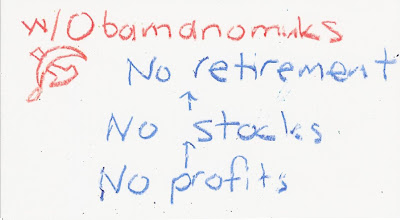 w/Obamanomiks
No retirement
No stocks
No profits